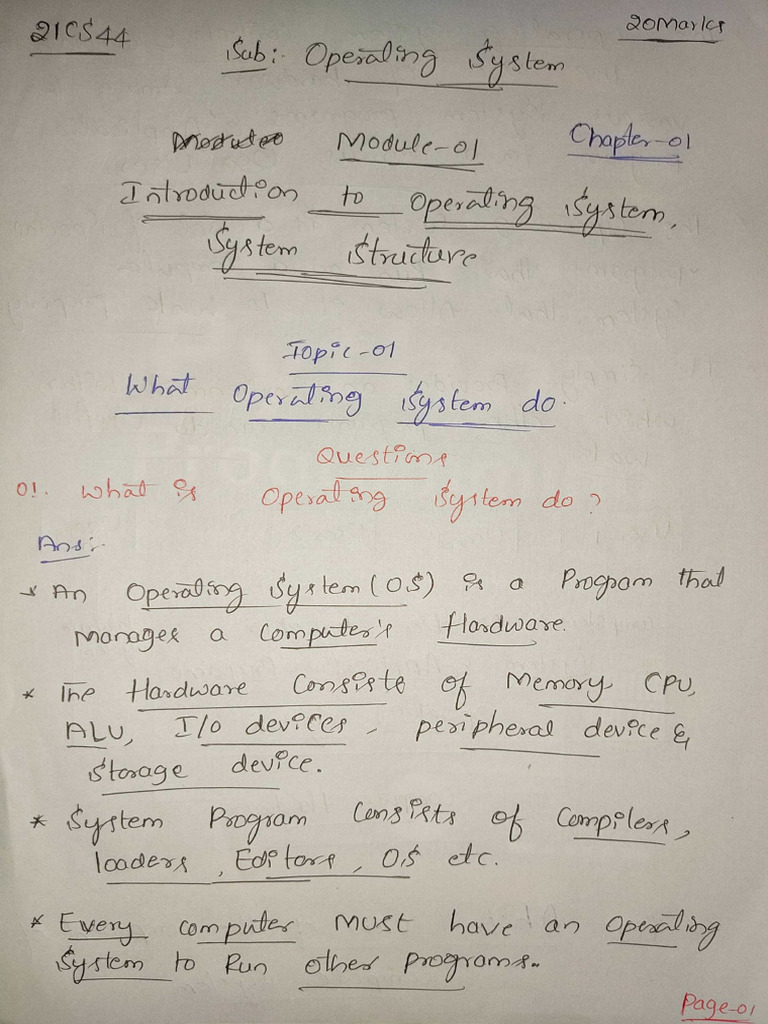 21CS44
20Marks
Sub:- Operating System
Module-01
Chapter-01
Introduction to Operating System,
System Structure
Topic-01
What Operating System do.
Questions
01. What is Operating System do?
Ans:-
* An Operating System (OS) is a Program that
Manages a Computer's Hardware.
* The Hardware Consists of Memory CPU,
ALU, I/O devices, peripheral device &
Storage device.
* System Program Consists of Compilers,
loaders, Editors, OS etc.
* Every computer MUST have an Operating
System to Run other programs.
Page-01